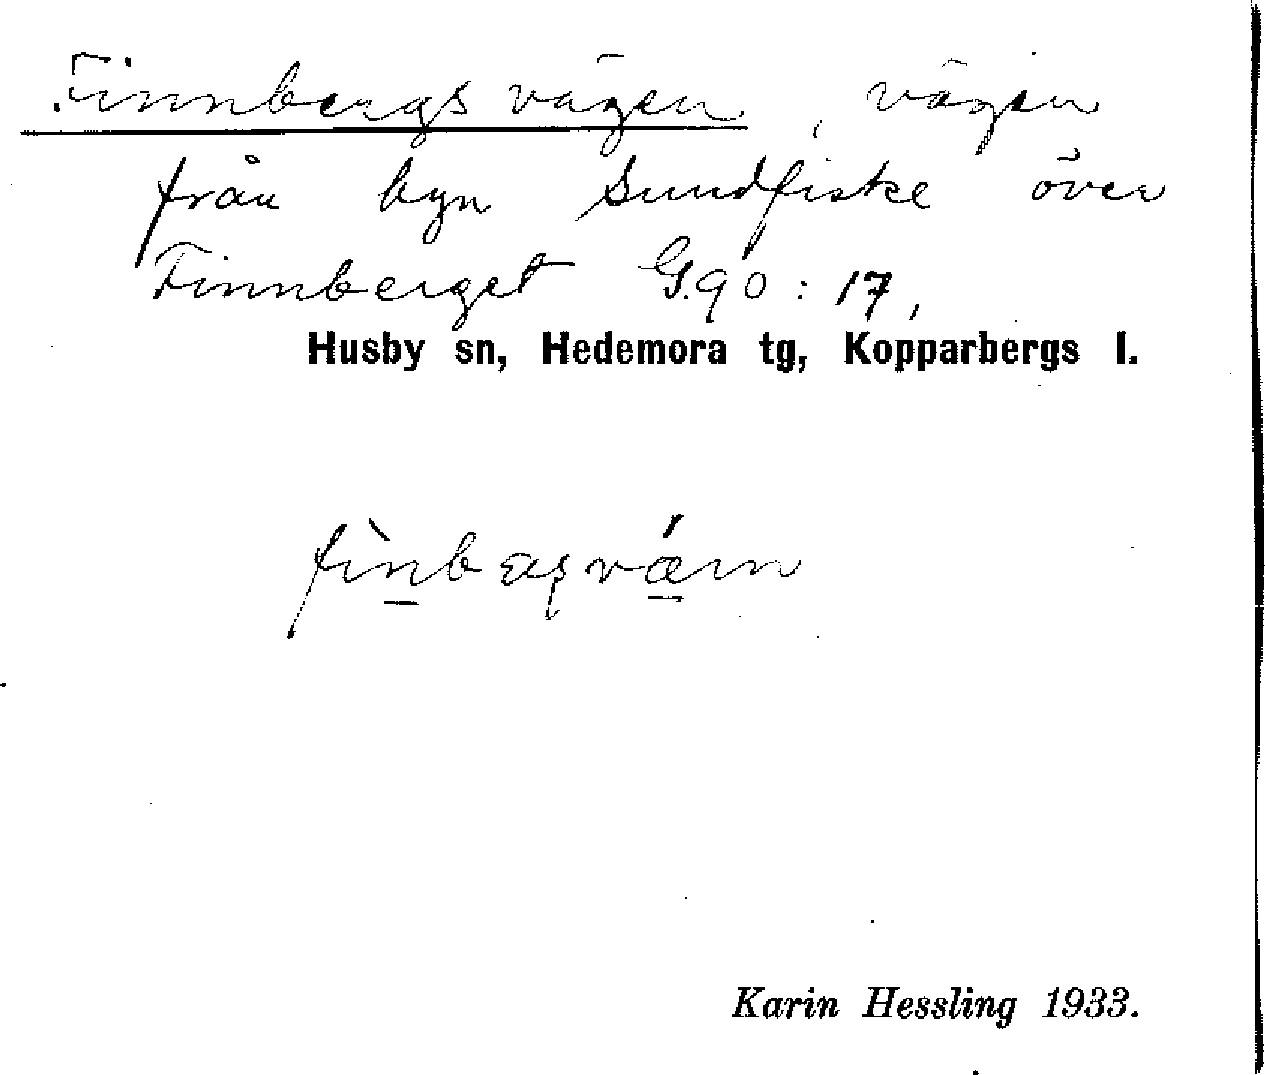 Finnbergsvägen, vägen
från byn Sundfiske över
Finnberget G.90:17,
Husby sn, Hedemora tg, Kopparbergs l.
Karin Hessling 1933.